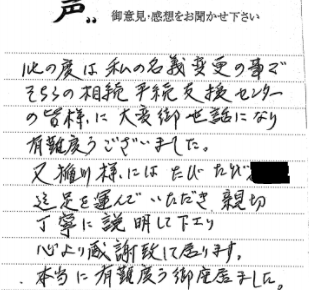 声
御意見・感想をお聞かせ下さい
此の度は私の名義変更の事で
そちらの相続手続支援センター
の皆様に大変御世話になり
有難度うございました。
又 様にはたび たび
迄足を運んでいただき 親切
丁寧に説明して下さり
心より感謝致して居ります。
本当に有難度う御座居ました。